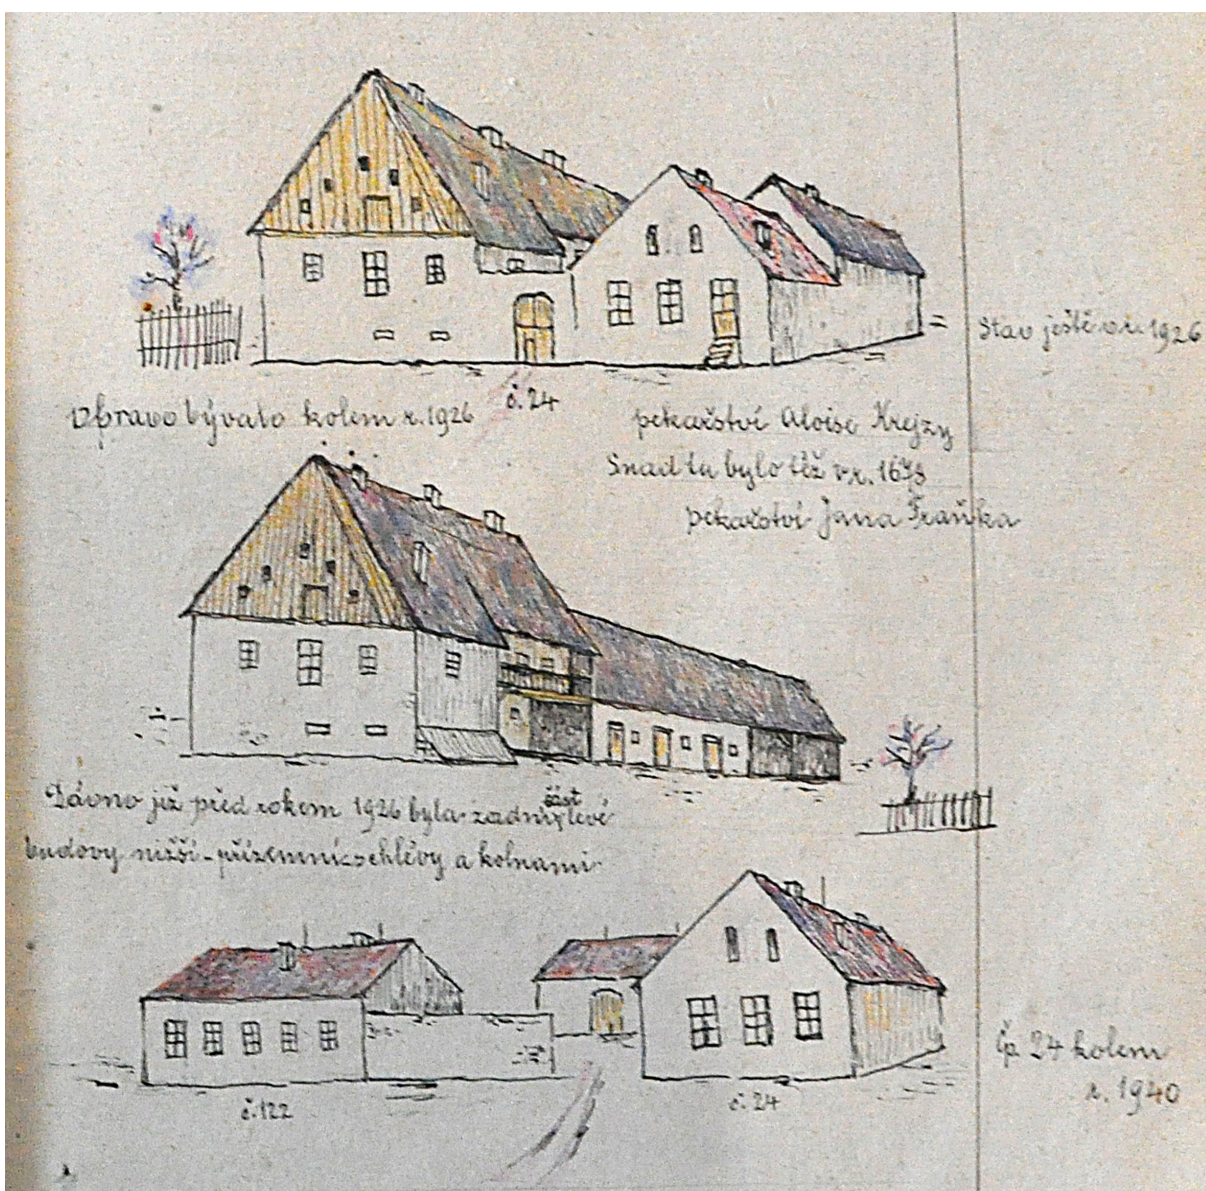 Stav ještě v r. 1926
č. 24
Vpravo bývalo kolem r. 1926
pekařství Aloise Krejzy
Snad tu bylo též v r. 1678
pekařství Jana Fraňka
Dávno již před rokem 1926 byla zadní část levé
budovy nižší - přízemní s chlévy a kolnami
č. 122
č. 24
čp. 24 kolem
r. 1940